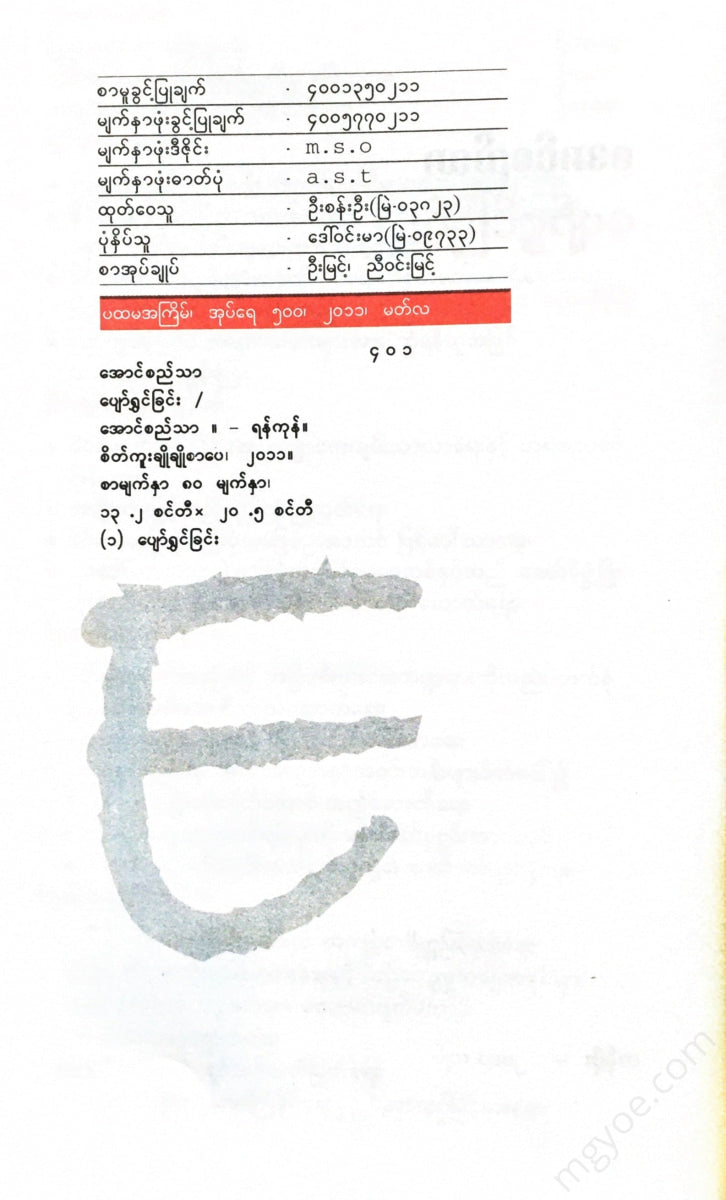 စာမူခွင့်ပြုချက် - ၄၀၀၁၃၅၀၂၁၁
မျက်နှာဖုံးခွင့်ပြုချက် - ၄၀၀၅၇၇၀၂၁၁
မျက်နှာဖုံးဒီဇိုင်း - m.s.o
မျက်နှာဖုံးဓာတ်ပုံ - a.s.t
ထုတ်ဝေသူ - ဦးစန်းဦး(မြဲ-၀၃၈၂၃)
ပုံနှိပ်သူ - ဒေါ်ဝင်းမာ(မြဲ-၀၉၇၃၃)
စာအုပ်ချုပ် - ဦးမြင့်၊ ညီဝင်းမြင့်
ပထမအကြိမ်၊ အုပ်ရေ ၅၀၀၊ ၂၀၁၁၊ မတ်လ
၄၀၁
အောင်စည်သာ
ပျော်ရွှင်ခြင်း /
အောင်စည်သာ ။ – ရန်ကုန်။
စိတ်ကူးချိုချိုစာပေ၊ ၂၀၁၁။
စာမျက်နှာ ၈၀ မျက်နှာ၊
၁၃ .၂ စင်တီ× ၂၀ .၅ စင်တီ
(၁) ပျော်ရွှင်ခြင်း
mgyoe.com